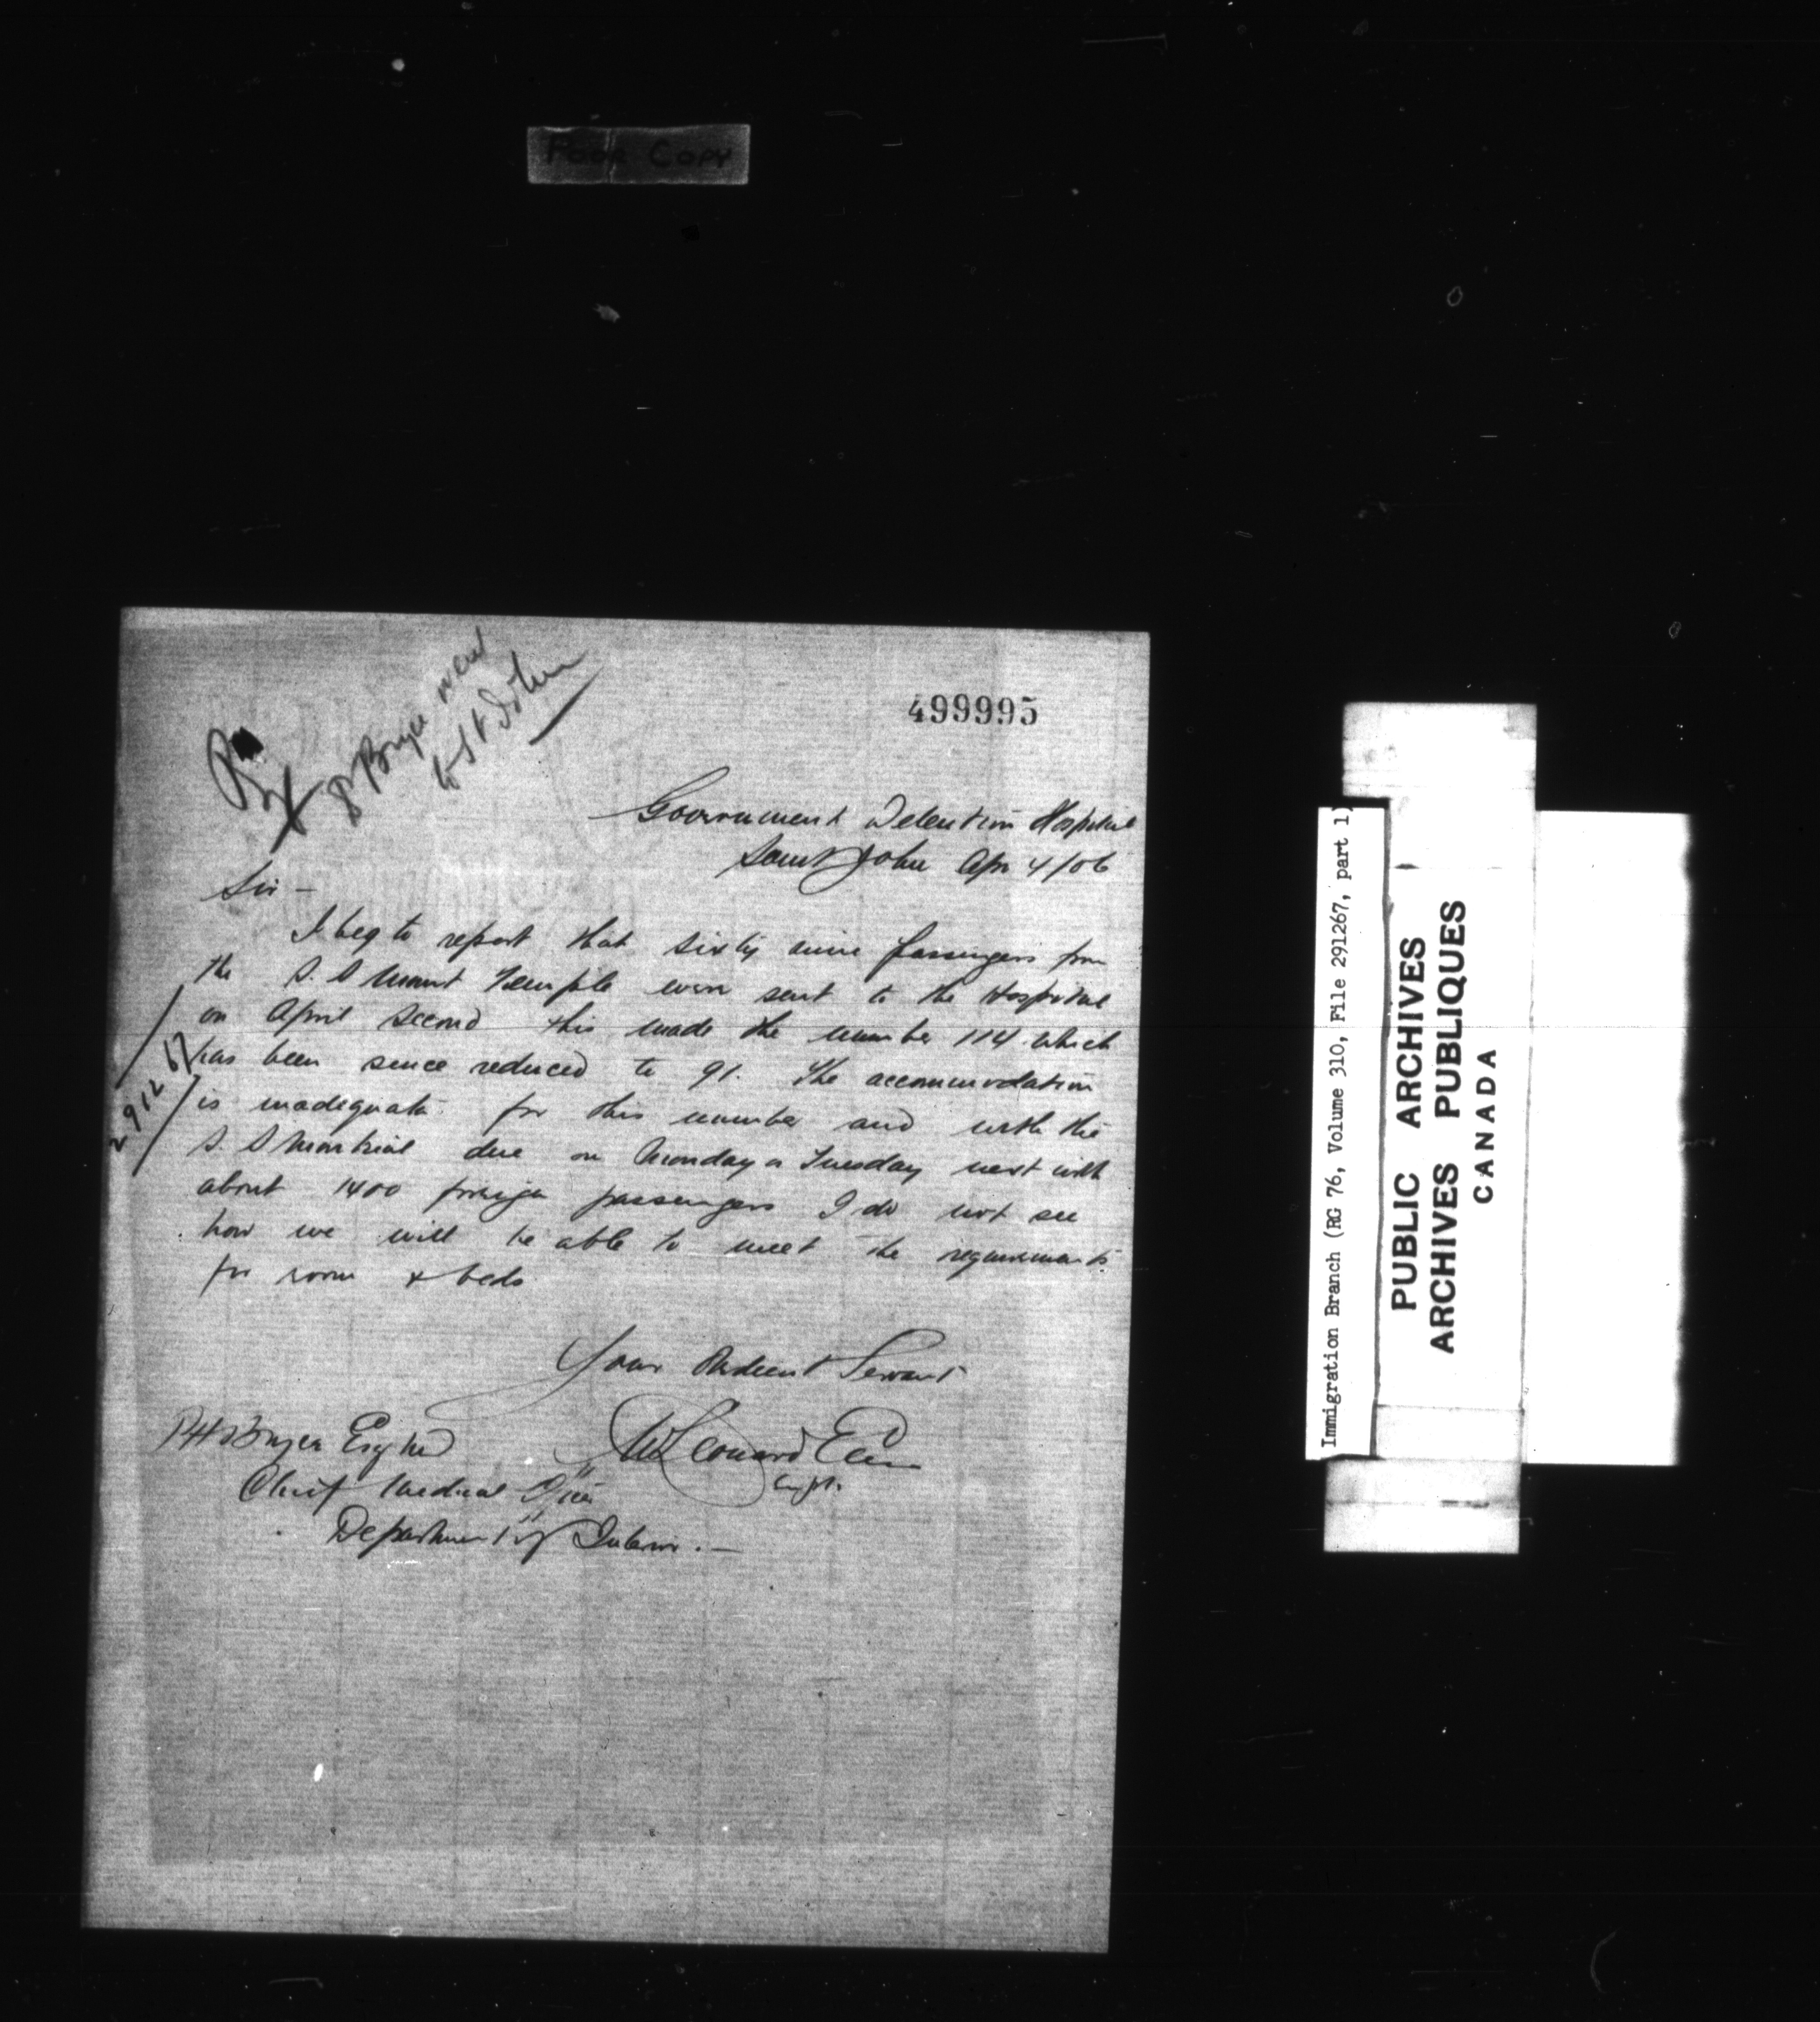 Poor Copy
499995
Dr Bryce went
to St John
Government Detention Hospital
Saint John Apr 4/06
Sir -
I beg to report that sixty nine passengers from
the S. S Mount Temple were sent to the Hospital
on April second this made the number 114 which
has been since reduced to 91. The accommodation
is inadequate for this number and with the
S. S Montreal due on Monday or Tuesday next with
about 1400 foreign passengers I do not see
how we will be able to meet the requirements
for room & beds
291267
Your Obedient Servant
J W Leonard Ellis
P H Bryce Esq M D
Chief Medical Officer
Department of Interior. —
Immigration Branch (RG 76, Volume 310, File 291267, part 1)
PUBLIC ARCHIVES
ARCHIVES PUBLIQUES
CANADA